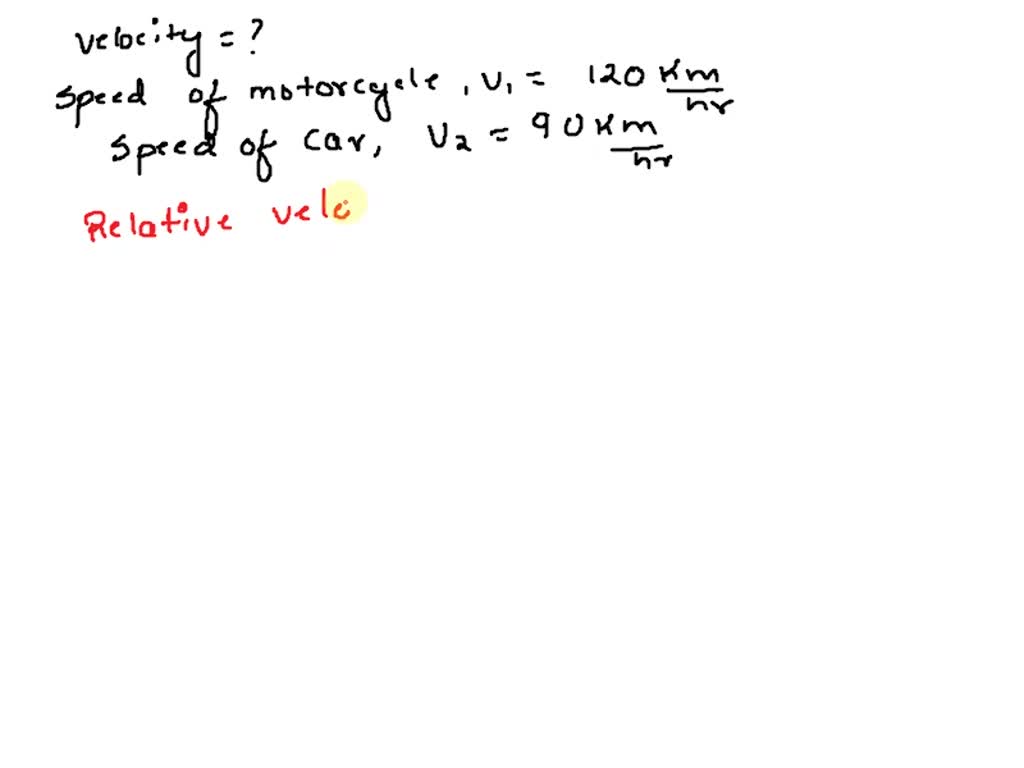 velocity = ?
speed of motorcycle, V₁ = 120 Km/hr
speed of car, V₂ = 90 Km/hr
Relative velo